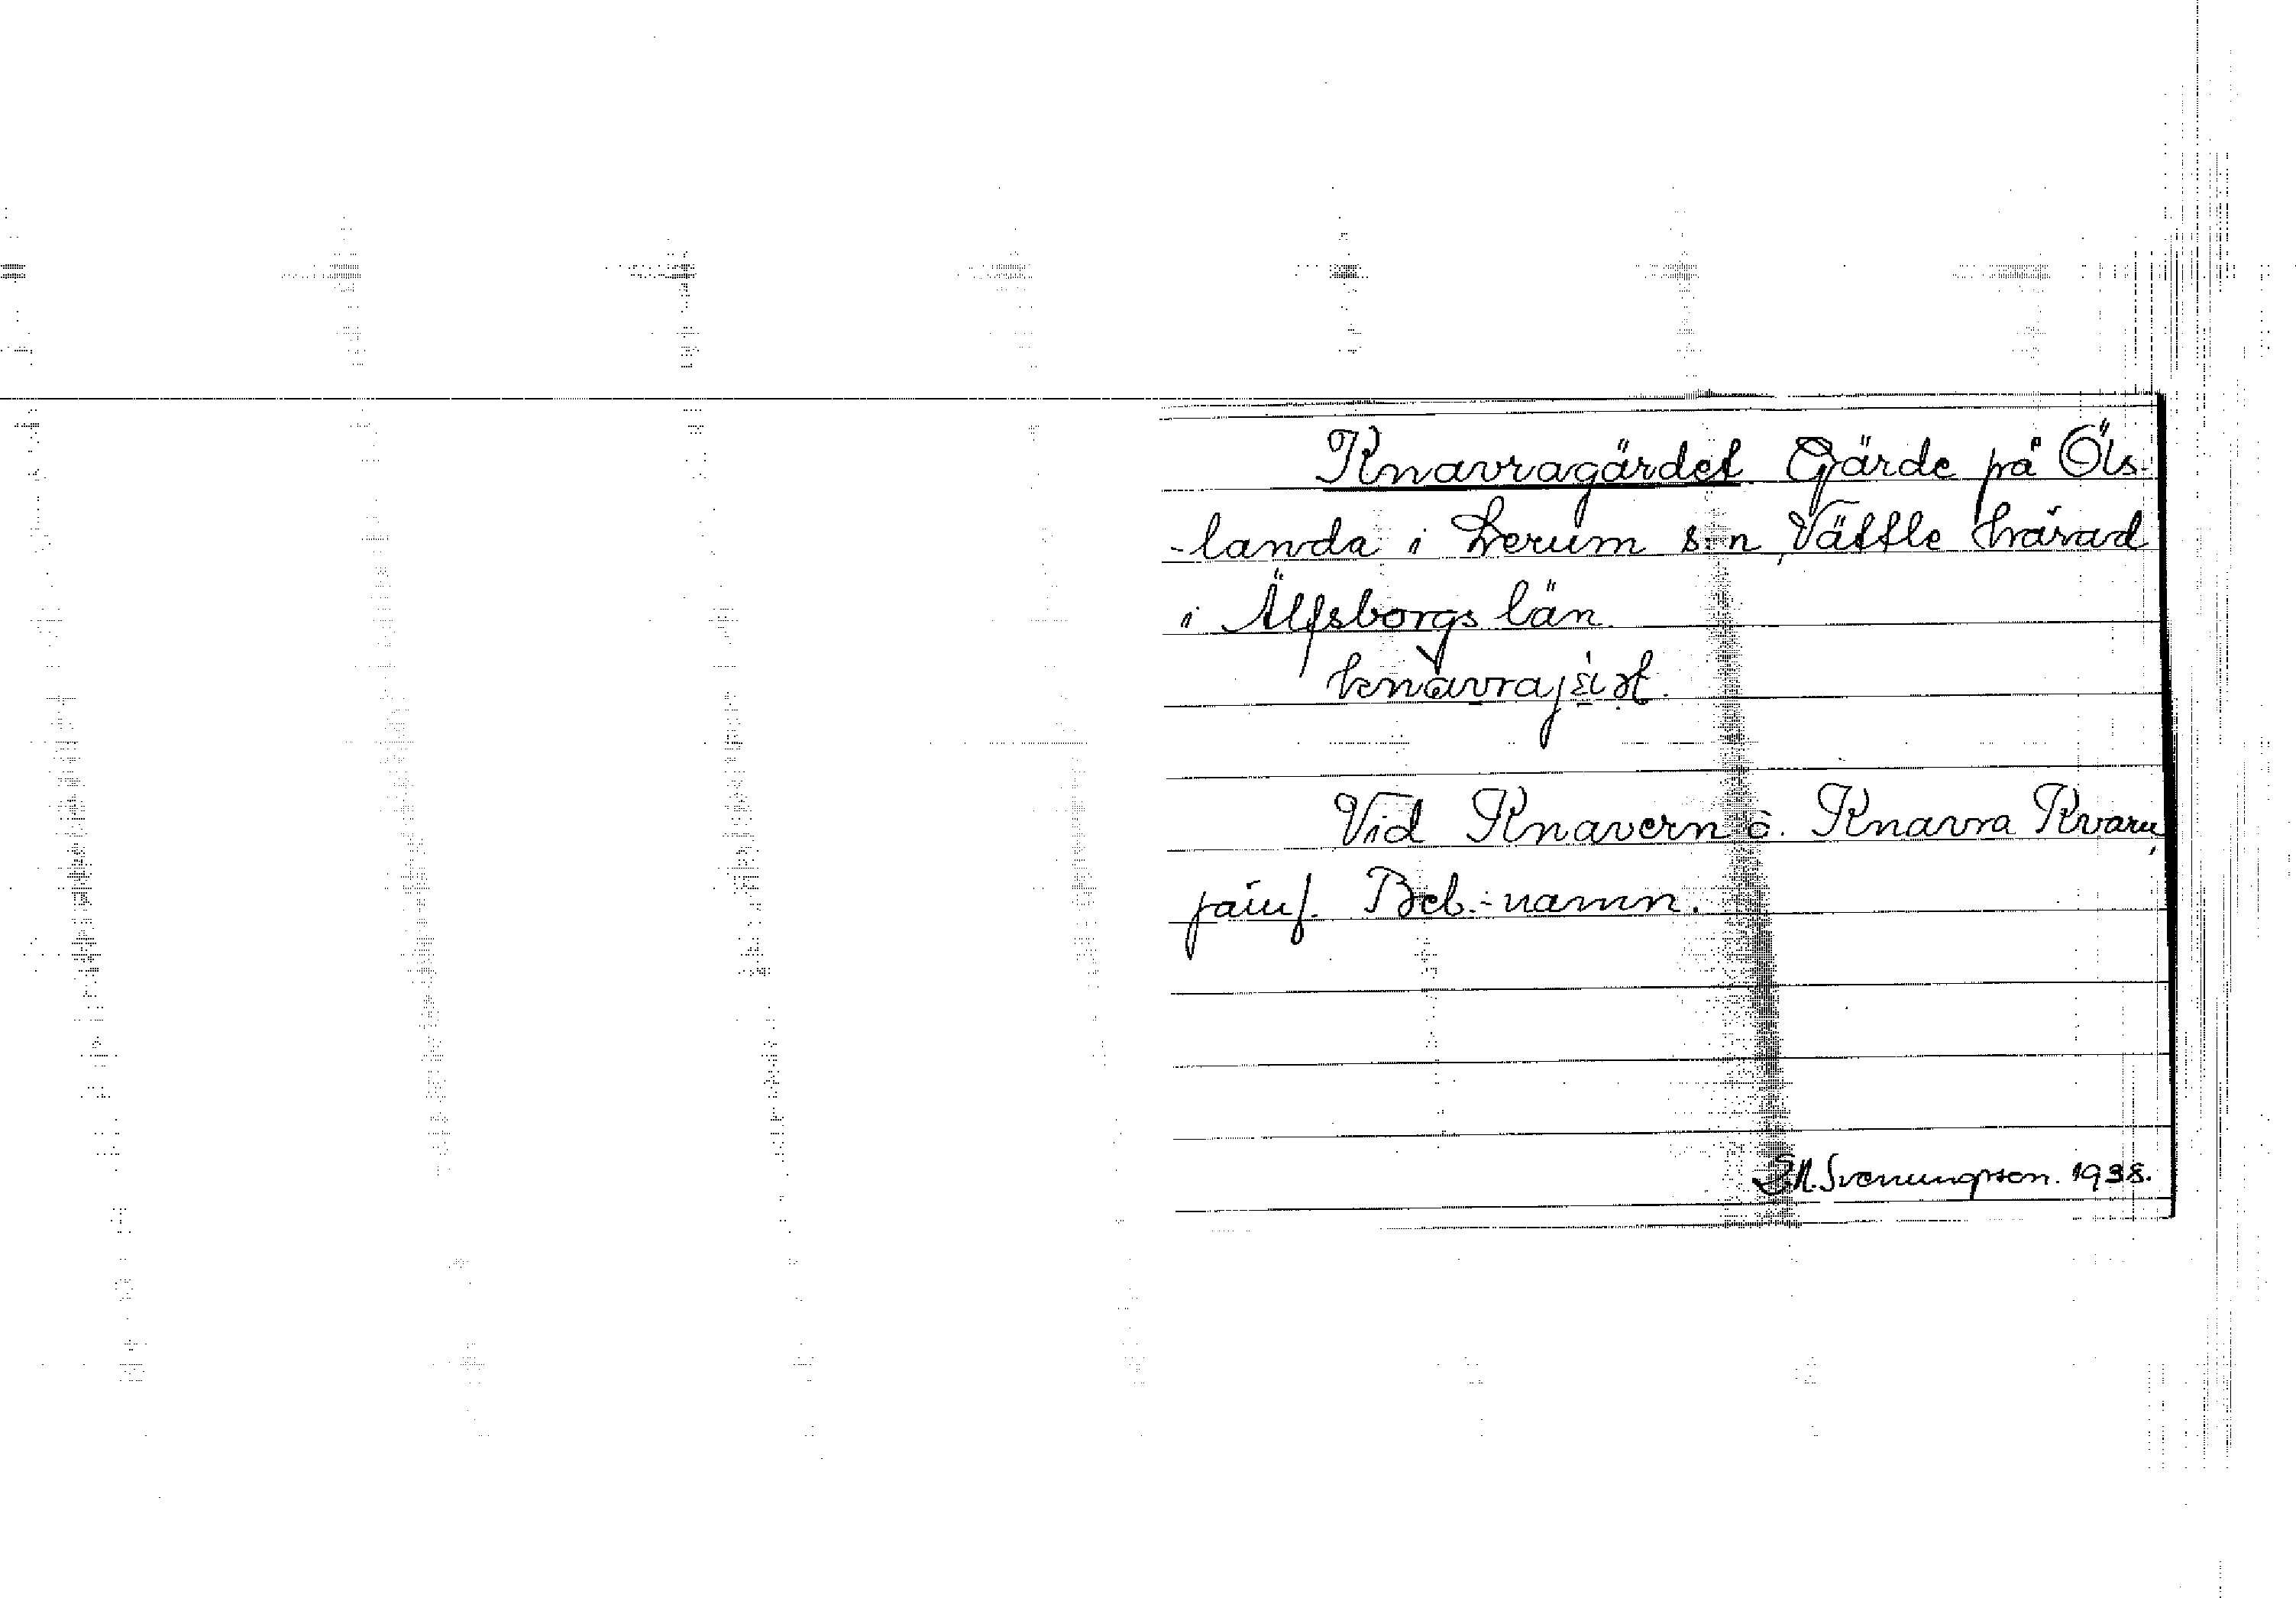 Knavragärdet Gärde på Öls-
-landa i Lerum s:n, Vättle härad
i Älfsborgs län.
Vid Knavern o. Knavra Kvarn,
jämf. Beb.-namn.
S.A. Svenungsson. 1938.